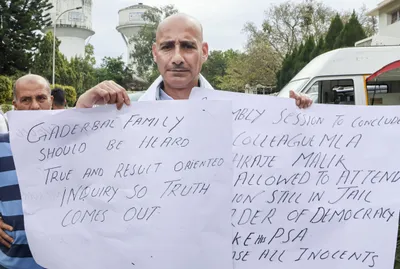 GADERBAL FAMILY
SHOULD BE HEARD
TRUE AND RESULT ORIENTED
INQUIRY SO TRUTH
COMES OUT
SESSION TO CONCLUDE
COLLEAGUE MLA
MALIK
ALLOWED TO ATTEND
STILL IN JAIL
OF DEMOCRACY
PSA
ALL INOCENTS